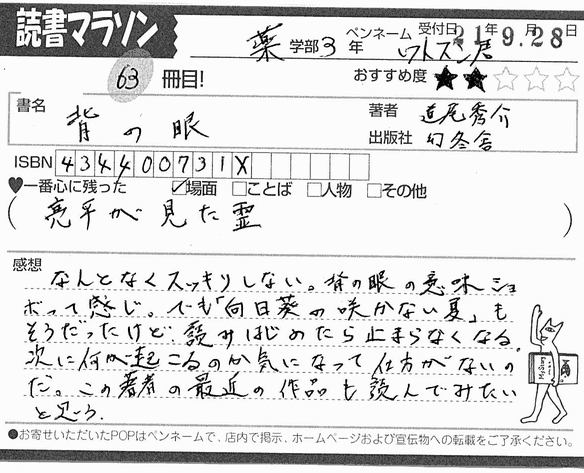 読書マラソン
薬 学部 3 年 ペンネーム ワトスン君 受付日 21年9月28日
63 冊目! おすすめ度 ★★☆☆☆
書名 背の眼 著者 道尾秀介
出版社 幻冬舎
ISBN 434400731X
♥一番心に残った ☑場面 □ことば □人物 □その他
(亮平が見た霊)
感想
なんとなくスッキリしない。背の眼の意味ショ
ボって感じ。でも「向日葵の咲かない夏」も
そうだったけど、読みはじめたら止まらなくなる。
次に何が起こるのか気になって仕方がないの
だ。この著者の最近の作品も読んでみたい
と思う。
●お寄せいただいたPOPはペンネームで、店内で掲示、ホームページおよび宣伝物への転載をご了承ください。